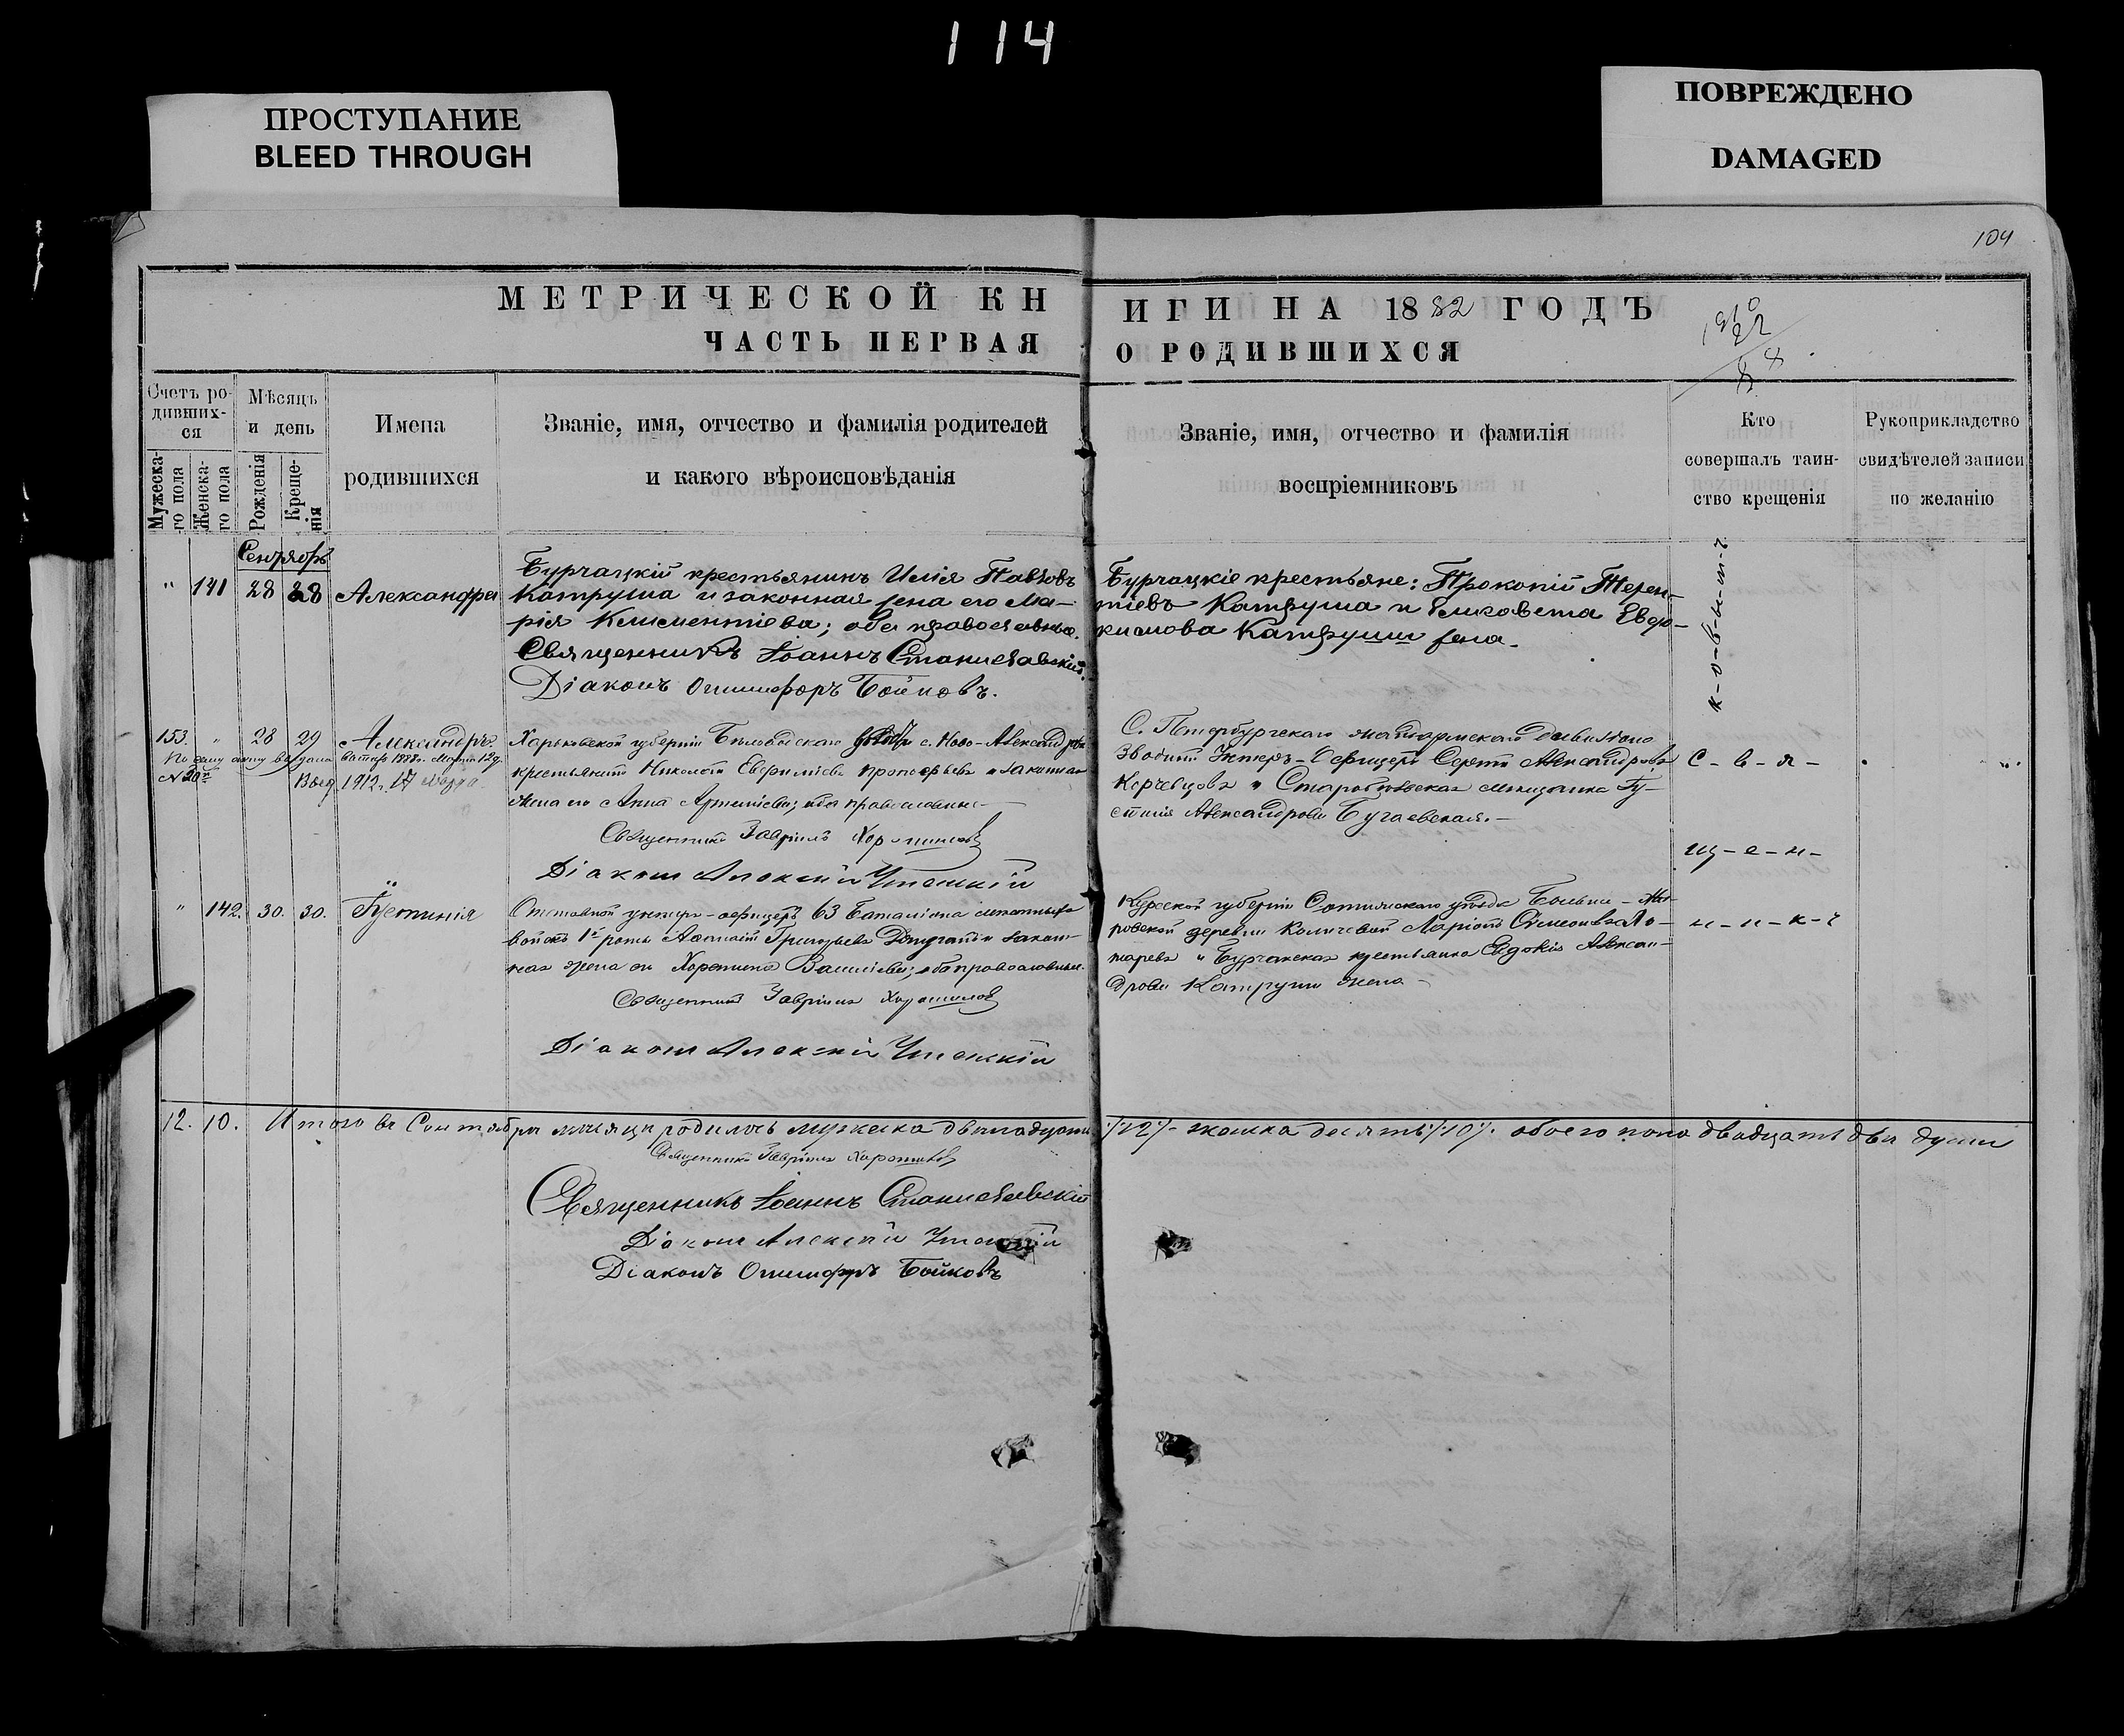 114
ПРОСТУПАНИЕ
BLEED THROUGH
ПОВРЕЖДЕНО
DAMAGED
104
МЕТРИЧЕСКОЙ КН
ИГИ НА 1882 ГОДЪ
ЧАСТЬ ПЕРВАЯ
О РОДИВШИХСЯ
Счетъ ро-
дивших-
ся
Мужеска-
го пола
Женска-
го пола
Мѣсяцъ
и день
Рожденія
Креще-
нія
Имена
родившихся
Званіе, имя, отчество и фамилія родителей
и какого вѣроисповѣданія
Званіе, имя, отчество и фамилія
воспріемниковъ
Кто
совершалъ таин-
ство крещенія
Рукоприкладство
свидѣтелей записи
по желанію
Сентябрь
" 141 28 28 Александра
Бурчацкій крестьянинъ Илія Павловъ
Катруша и законная жена его Ма-
рія Климентіева; оба православные.
Священникъ Іоаннъ Станиславскій.
Діаконъ Онисифоръ Бойковъ.
Бурчацкіе крестьяне: Прокопій Терен-
тіевъ Катруша и Елисавета Евдо-
кимова Катруши жена.
к-о-в-ы-т-ч
153. " 28 29 Александръ.
1912 г. 17 марта
Харьковской губерніи Бѣловодскаго с. Ново-Александровки
крестьянинъ Николай Евфиміевъ и законная
жена его Анна Артеміева; оба православные
Священникъ Гавріилъ Хорошиловъ
Діаконъ Алексій
С. Петербургскаго жандармскаго дивизіона
взводный Унтеръ-Офицеръ Сергѣй Александровъ
Корчевцовъ и Старобѣльская мѣщанка Іу-
стинія Александрова Бугаевская.
с-в-я-
щ-е-н-
" 142. 30. 30. Іустинія
Отставной унтеръ-офицеръ 63 Баталіона
войскъ 1й роты Григорьевъ и закон-
ная жена его Васильева; оба православные.
Священникъ Гавріилъ Хорошиловъ
Діаконъ Алексій
Курской губерніи уѣзда
ровской деревни Ларіонъ Симеоновъ
таревъ и Бурчакская крестьянка Евдокія Алексан-
дрова Катруши жена
н-и-к-ч
12. 10. Итого въ Сентябрѣ мѣсяцѣ родилось мужеска двѣнадцать /12/ - женска десять /10/. обоего пола двадцать двѣ души
Священникъ Гавріилъ Хорошиловъ
Священникъ Іоаннъ Станиславскій
Діаконъ Алексій
Діаконъ Онисифоръ Бойковъ